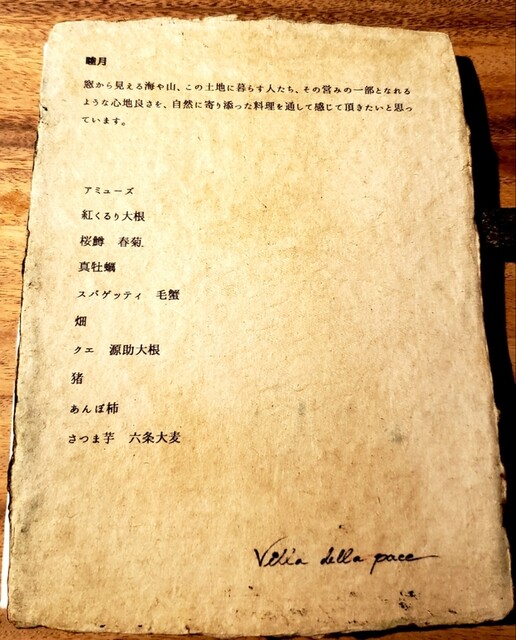 睦月
窓から見える海や山、この土地に暮らす人たち、その営みの一部となれる
ような心地良さを、自然に寄り添った料理を通して感じて頂きたいと思っ
ています。
アミューズ
紅くるり大根
桜鱒 春菊
真牡蠣
スパゲッティ 毛蟹
畑
クエ 源助大根
猪
あんぽ柿
さつま芋 六条大麦
Villa della pace